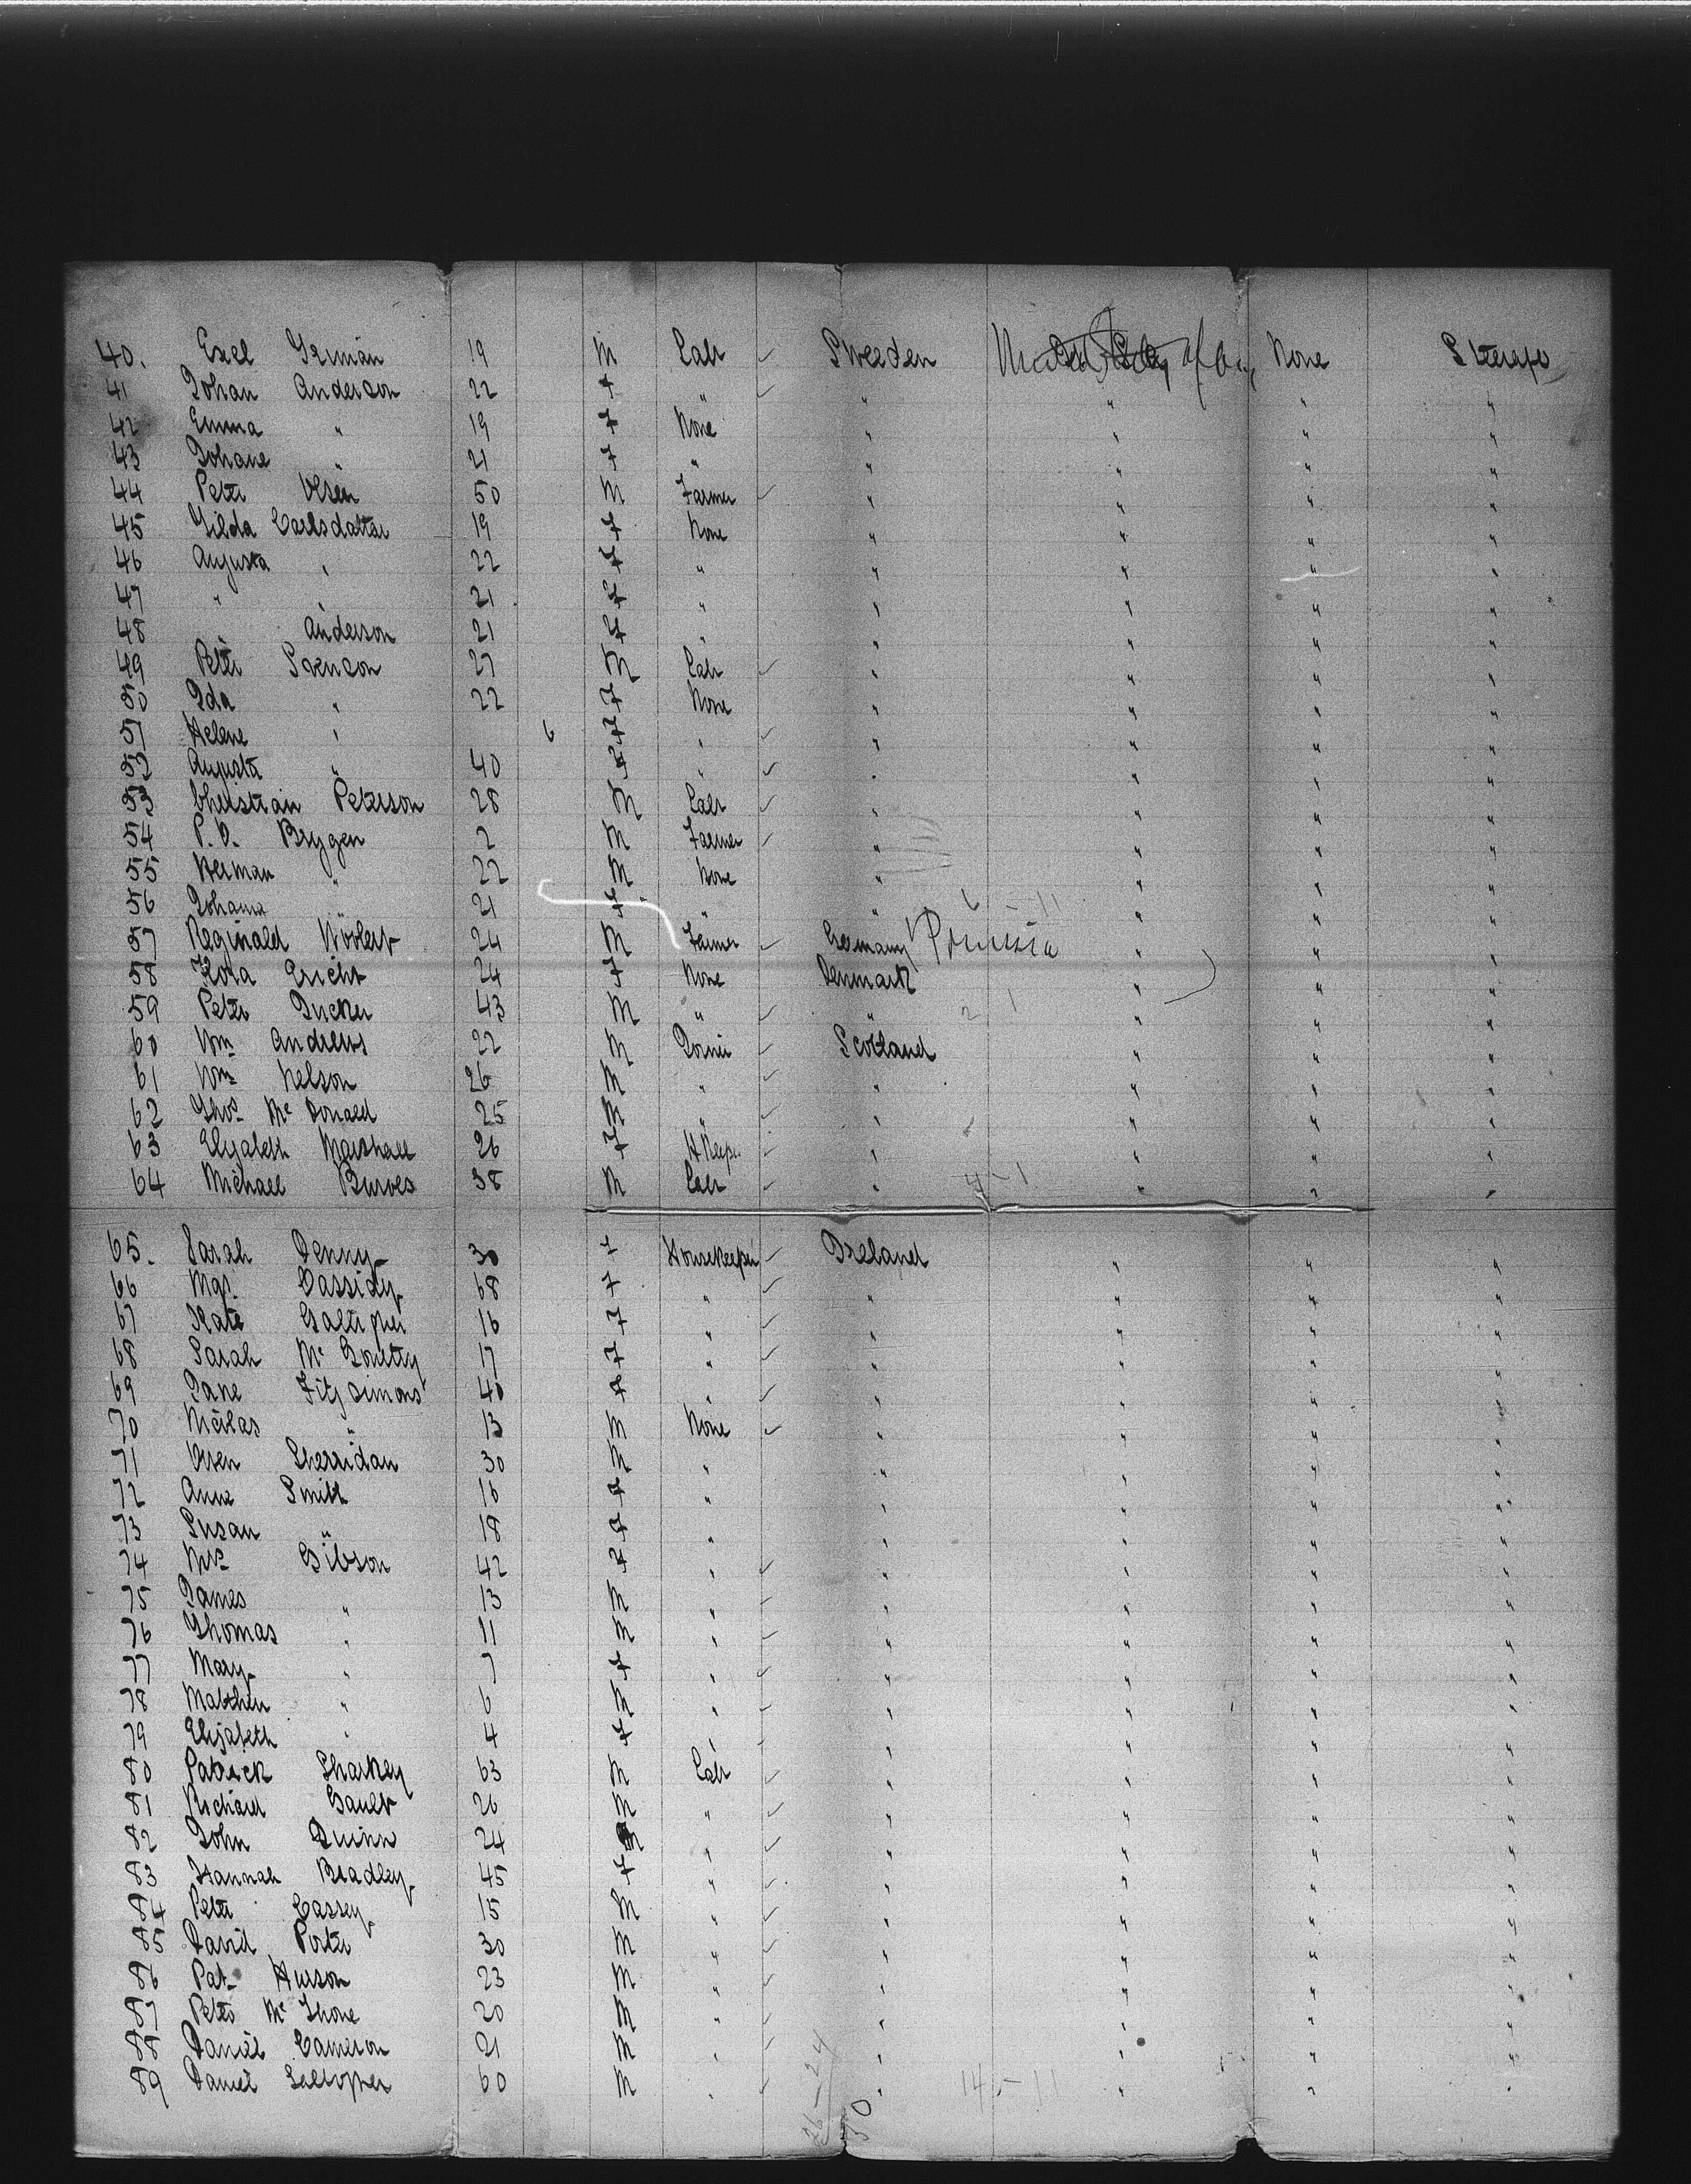 40. Exel German 19 M Labr ✓ Sweden United States of Am, None Steerage
41 Johan Anderson 22 F " ✓ " " " "
42 Emma " 19 F None " " " "
43 Johane " 21 F " " " " "
44 Peter Olsen 50 M Farmer ✓ " " " "
45 Gilda Carlsdatter 19 F None " " " "
46 Augusta " 22 F " " " " "
47 " " 21 F " " " " "
48 " Anderson 21 F " " " " "
49 Peter Svencon 27 M Labr ✓ " " " "
50 Ida " 22 F None " " " "
51 Helene " 6 F " ✓ " " " "
52 Augusta " 40 F " ✓ " " " "
53 Christian Peterson 28 M Labr ✓ " " " "
54 P. O. Brygen 2 M Farmer ✓ " " " "
55 Herman " 22 M None " " " "
56 Johana " 21 F " " 6 - 11 " " "
57 Reginald 24 M Farmer ✓ Germany Prussia " " "
58 Flora Ericht 24 F None Denmark " " "
59 Peter Ducker 43 M " ✓ " 2 1 " " "
60 Wm Andrews 22 M ✓ Scotland " " "
61 Wm Nelson 26 M " ✓ " " " "
62 Thos Mc Donald 25 M " ✓ " " " "
63 Elizabeth Marshall 26 F HKeepr ✓ " " " "
64 Michael Burves 38 M Labr ✓ " 4-1 " " "
65. Sarah Denny 30 F Housekeeper ✓ Ireland " " "
66 Mgt. Cassidy 68 F " ✓ " " " "
67 Kate Galtigher 16 F " ✓ " " " "
68 Sarah Mc Goretty 17 F " ✓ " " " "
69 Jane Fitzsimons 40 F " ✓ " " " "
70 Nicilas " 13 M None ✓ " " " "
71 Owen Sherridan 30 M " " " " "
72 Anne Smith 16 F " " " " "
73 Susan " 18 F " " " " "
74 Mrs Gibson 42 F " ✓ " " " "
75 James " 13 M " ✓ " " " "
76 Thomas " 11 M " ✓ " " " "
77 Mary " 7 F " ✓ " " " "
78 Matthew " 6 M " ✓ " " " "
79 Elizabeth " 4 F " ✓ " " " "
80 Patrick Sharkey 63 M Labr ✓ " " " "
81 Richard Gault 26 M " ✓ " " " "
82 John Quinn 24 M " ✓ " " " "
83 Hannah Bradley 45 F " ✓ " " " "
84 Peter Cassey 15 M " ✓ " " " "
85 David Porter 30 M " ✓ " " " "
86 Pat. Hurson 23 M " ✓ " " " "
87 Peter Mc Shone 20 M " ✓ " " " "
88 Daniel Cameron 21 M " ✓ " " " "
89 Daniel Gallopher 60 M " ✓ " 14-11 " " "
26-24
50